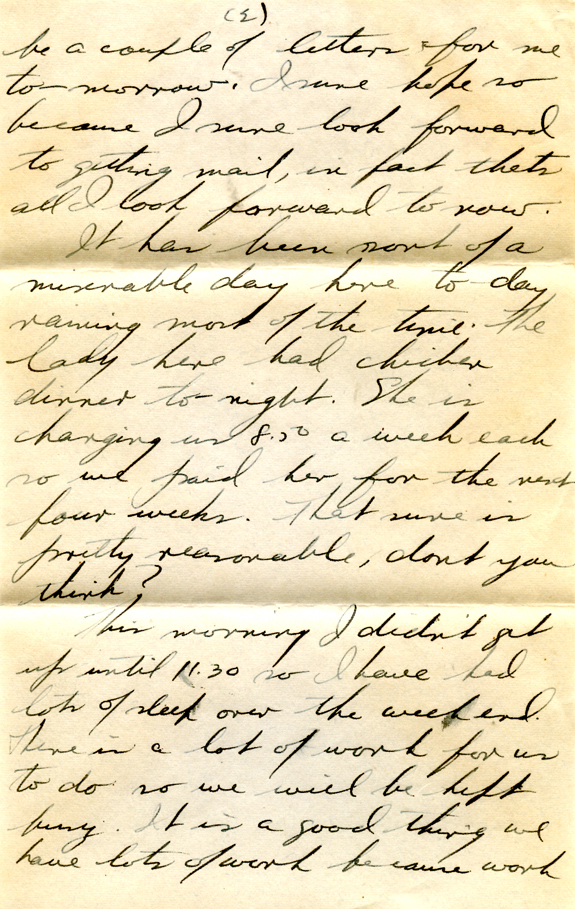 (2)
be a couple of letters for me
to-morrow. I sure hope so
because I sure look forward
to getting mail, in fact thets
all I look forward to now.
It has been sort of a
miserable day here to day
raining most of the time. The
lady here had chicken
dinner to-night. She is
charging us 8.50 a week each
so we paid her for the next
four weeks. That sure is
pretty reasonable, dont you
think?
This morning I didn't get
up until 11.30 so I have had
lots of sleep over the weekend.
There is a lot of work for us
to do so we will be kept
busy. It is a good thing we
have lots of work because work